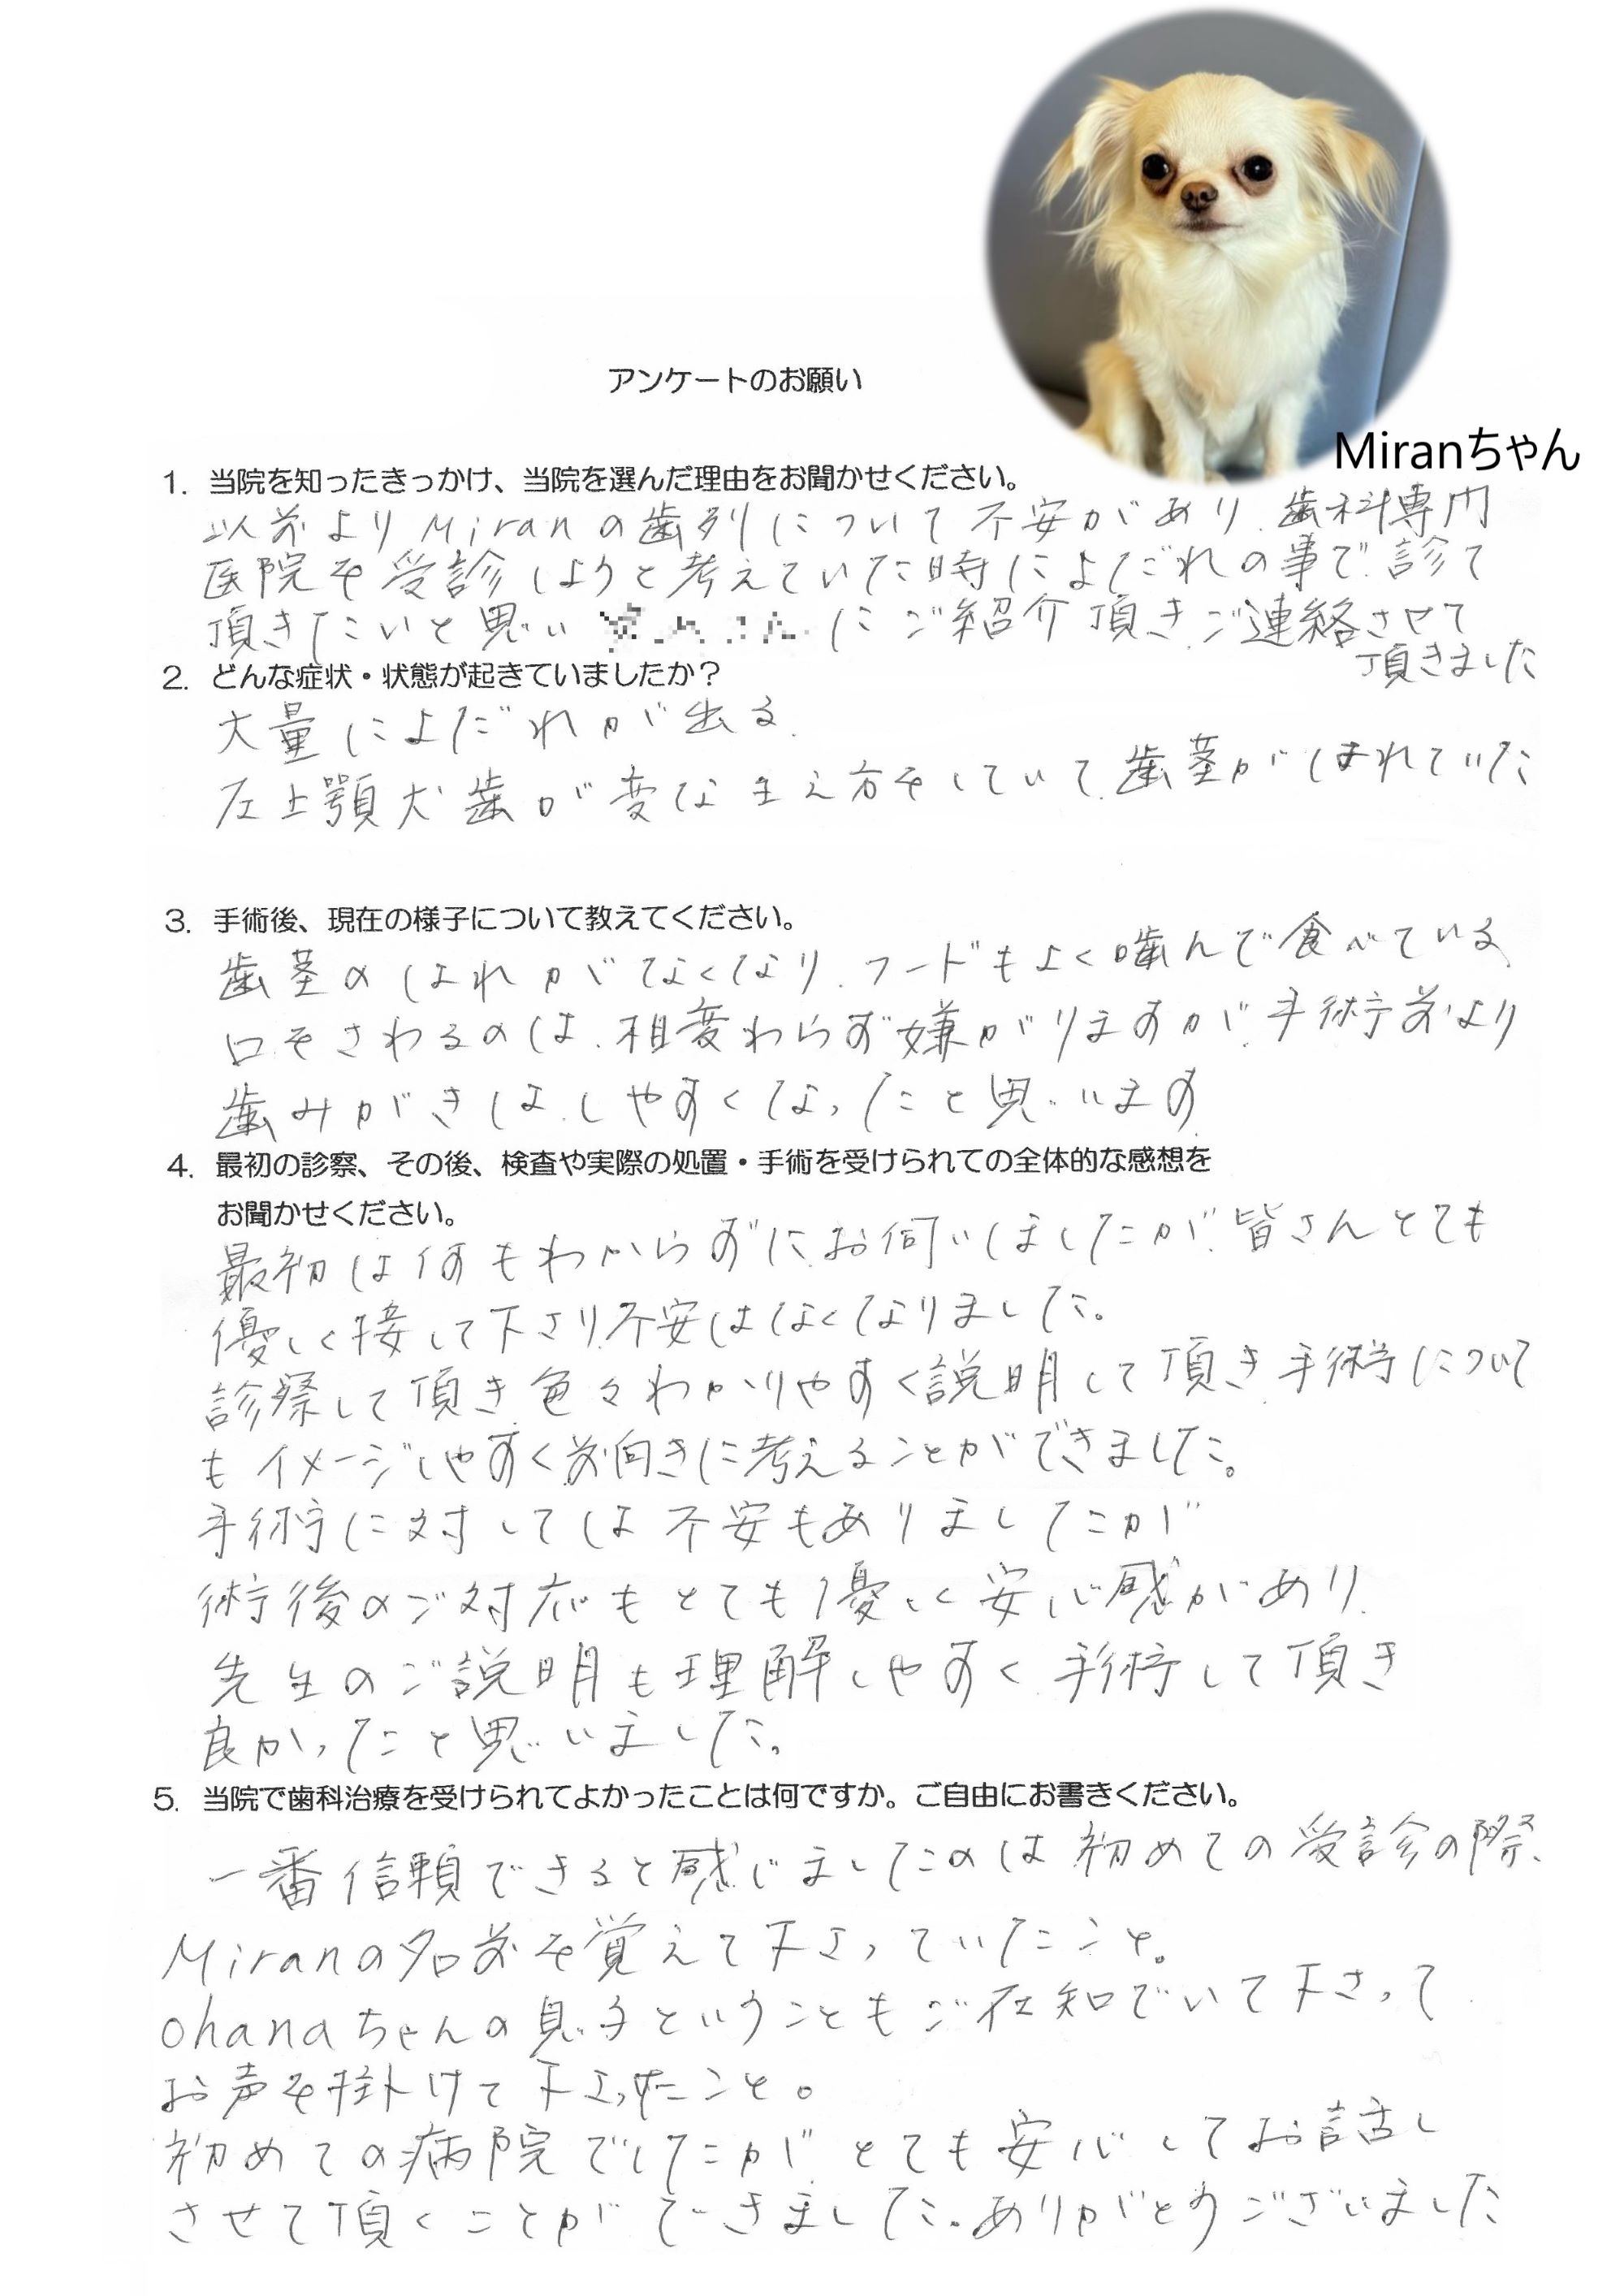 Miranちゃん
アンケートのお願い
1. 当院を知ったきっかけ、当院を選んだ理由をお聞かせください。
以前よりMiranの歯列について不安があり、歯科専門
医院を受診しようと考えていた時によだれの事で診て
頂きたいと思い にご紹介頂きご連絡させて
頂きました
2. どんな症状・状態が起きていましたか？
大量によだれが出る、
左上顎犬歯が変な生え方をしていて、歯茎がはれていた
3. 手術後、現在の様子について教えてください。
歯茎のはれがなくなり、フードもよく噛んで食べている、
口をさわるのは、相変わらず嫌がりますが、手術前より
歯みがきは、しやすくなったと思います
4. 最初の診察、その後、検査や実際の処置・手術を受けられての全体的な感想を
お聞かせください。
最初は何もわからずにお伺いしましたが、皆さんとても
優しく接して下さり不安はなくなりました。
診察して頂き色々わかりやすく説明して頂き手術について
もイメージしやすく前向きに考えることができました。
手術に対しては不安もありましたが
術後のご対応もとても優しく安心感があり、
先生のご説明も理解しやすく手術して頂き
良かったと思いました。
5. 当院で歯科治療を受けられてよかったことは何ですか。ご自由にお書きください。
一番信頼できると感じましたのは初めての受診の際、
Miranの名前を覚えて下さっていたこと。
ohanaちゃんの息子ということもご存知でいて下さって
お声を掛けて下さったこと。
初めての病院でしたがとても安心してお話し
させて頂くことができました。ありがとうございました